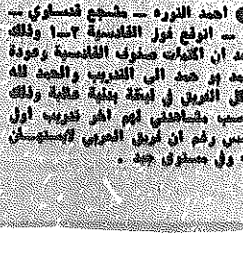 احمد النوره ــ مشجع قدساوي ــ
ــ اتوقع فوز القادسية ٢ــ١ وذلك
ان اكتملت صفوف القادسية وعودة
حمد الى التدريب والحمد لله
الفريق في لياقة بدنية عالية وذلك
مشاهدتي لهم اخر تدريب اول
رغم ان فريق العربي لايستهان
وفي مستوى جيد .